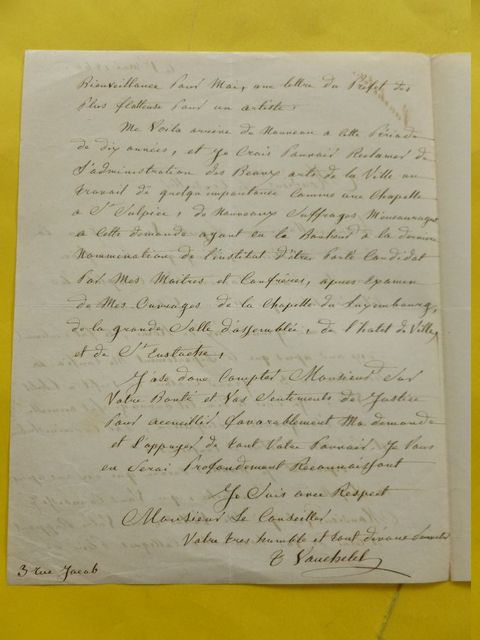 Bienveillance Pour Moi, une lettre du Préfet des
Plus flatteuse Pour un artiste.
Me Voila arrivé de Nouveau a Cette Période
de dix années, et Je Crois Pouvoir Reclamer de
l'administration des Beaux arts de la Ville un
travail de quelqu'importance Comme une Chapelle
a St Sulpice, de Nouveaux Suffrages M'encouragent
a Cette demande ayant eu le Bonheur a la derniere
Nommenation de l'institut d'être Porté Candidat
Par Mes Maitres et Confrères, apres Examen
de Mes Ouvrages de la Chapelle du Luxembourg,
de la grande Salle d'assemblée, de l'hotel de Ville,
et de St Eustache,
J'ose donc Compter Monsieur Sur
Votre Bonté et Vos Sentiments de Justice
Pour accueillir favorablement Ma demande
et l'appuyer de tout Votre Pouvoir. Je Vous
en Serai Profondement Reconnaissant
Je Suis avec Respect
Monsieur Le Conseiller
Votre tres humble et tout dévoué Serviteur
T Vauchelet
3 rue Jacob